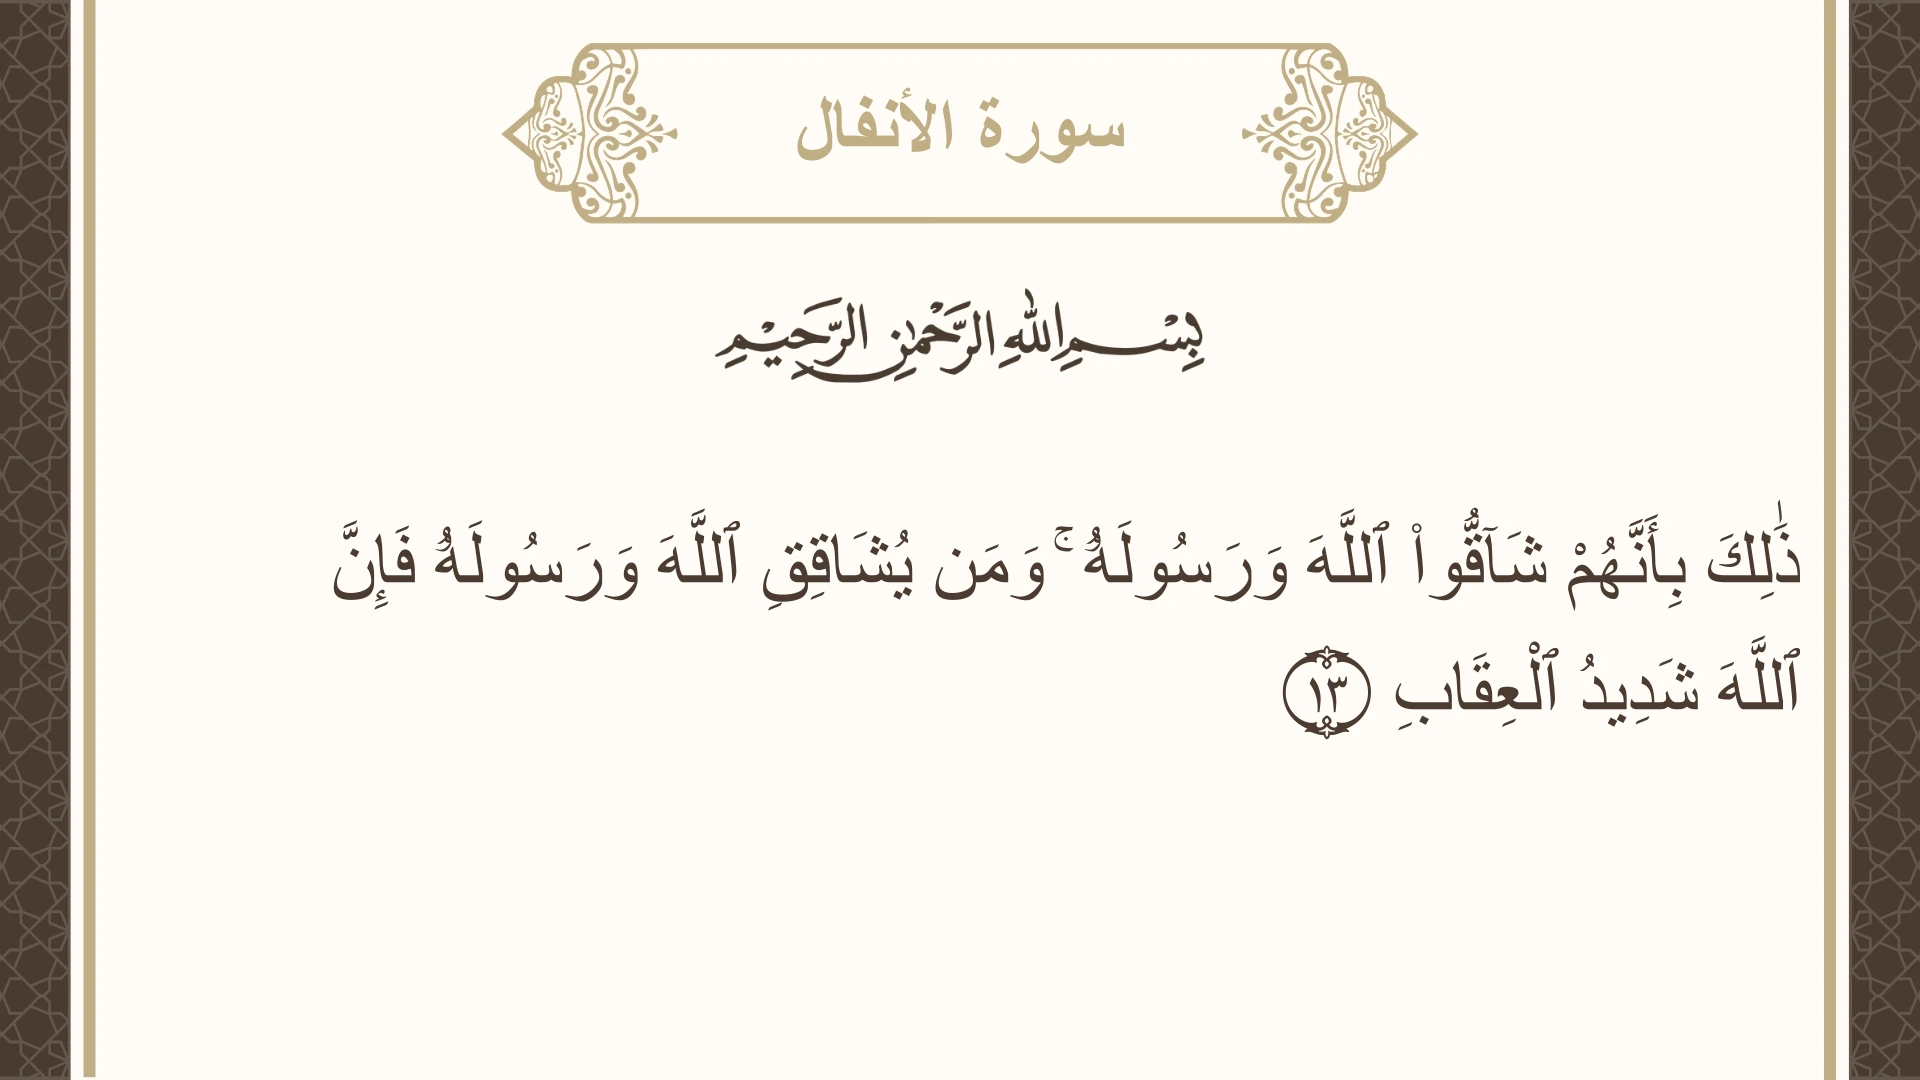 سورة الأنفال
بِسْمِ اللهِ الرَّحْمٰنِ الرَّحِيْمِ
ذَٰلِكَ بِأَنَّهُمْ شَآقُّوا۟ ٱللَّهَ وَرَسُولَهُۥ ۚ وَمَن يُشَاقِقِ ٱللَّهَ وَرَسُولَهُۥ فَإِنَّ
ٱللَّهَ شَدِيدُ ٱلْعِقَابِ ١٣